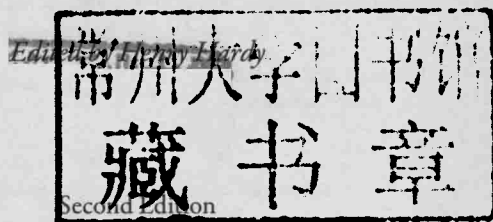 Edited by Henry Hardy
常州大学图书馆
藏书章
Second Edition